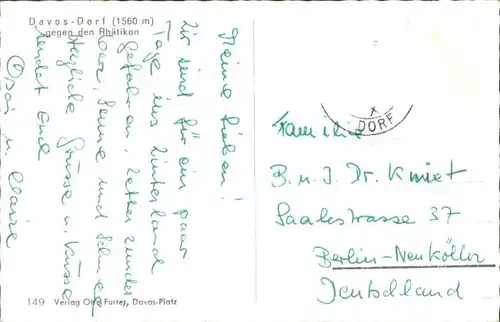 Davos-Dorf (1560 m)
gegen den Rhätikon
Meine Lieben!
Wir sind für ein paar
Tage ins Winterland
gefahren. Wetter wunder
bar, Sonne und Schnee
Herzliche Grüsse u. Küsse
sendet Euch
Opa u.
DORF
Familie
B. u. J. Dr. Kmiet
Saalestrasse 37
Berlin-Neukölln
Deutschland
149 Verlag Otto Furter, Davos-Platz